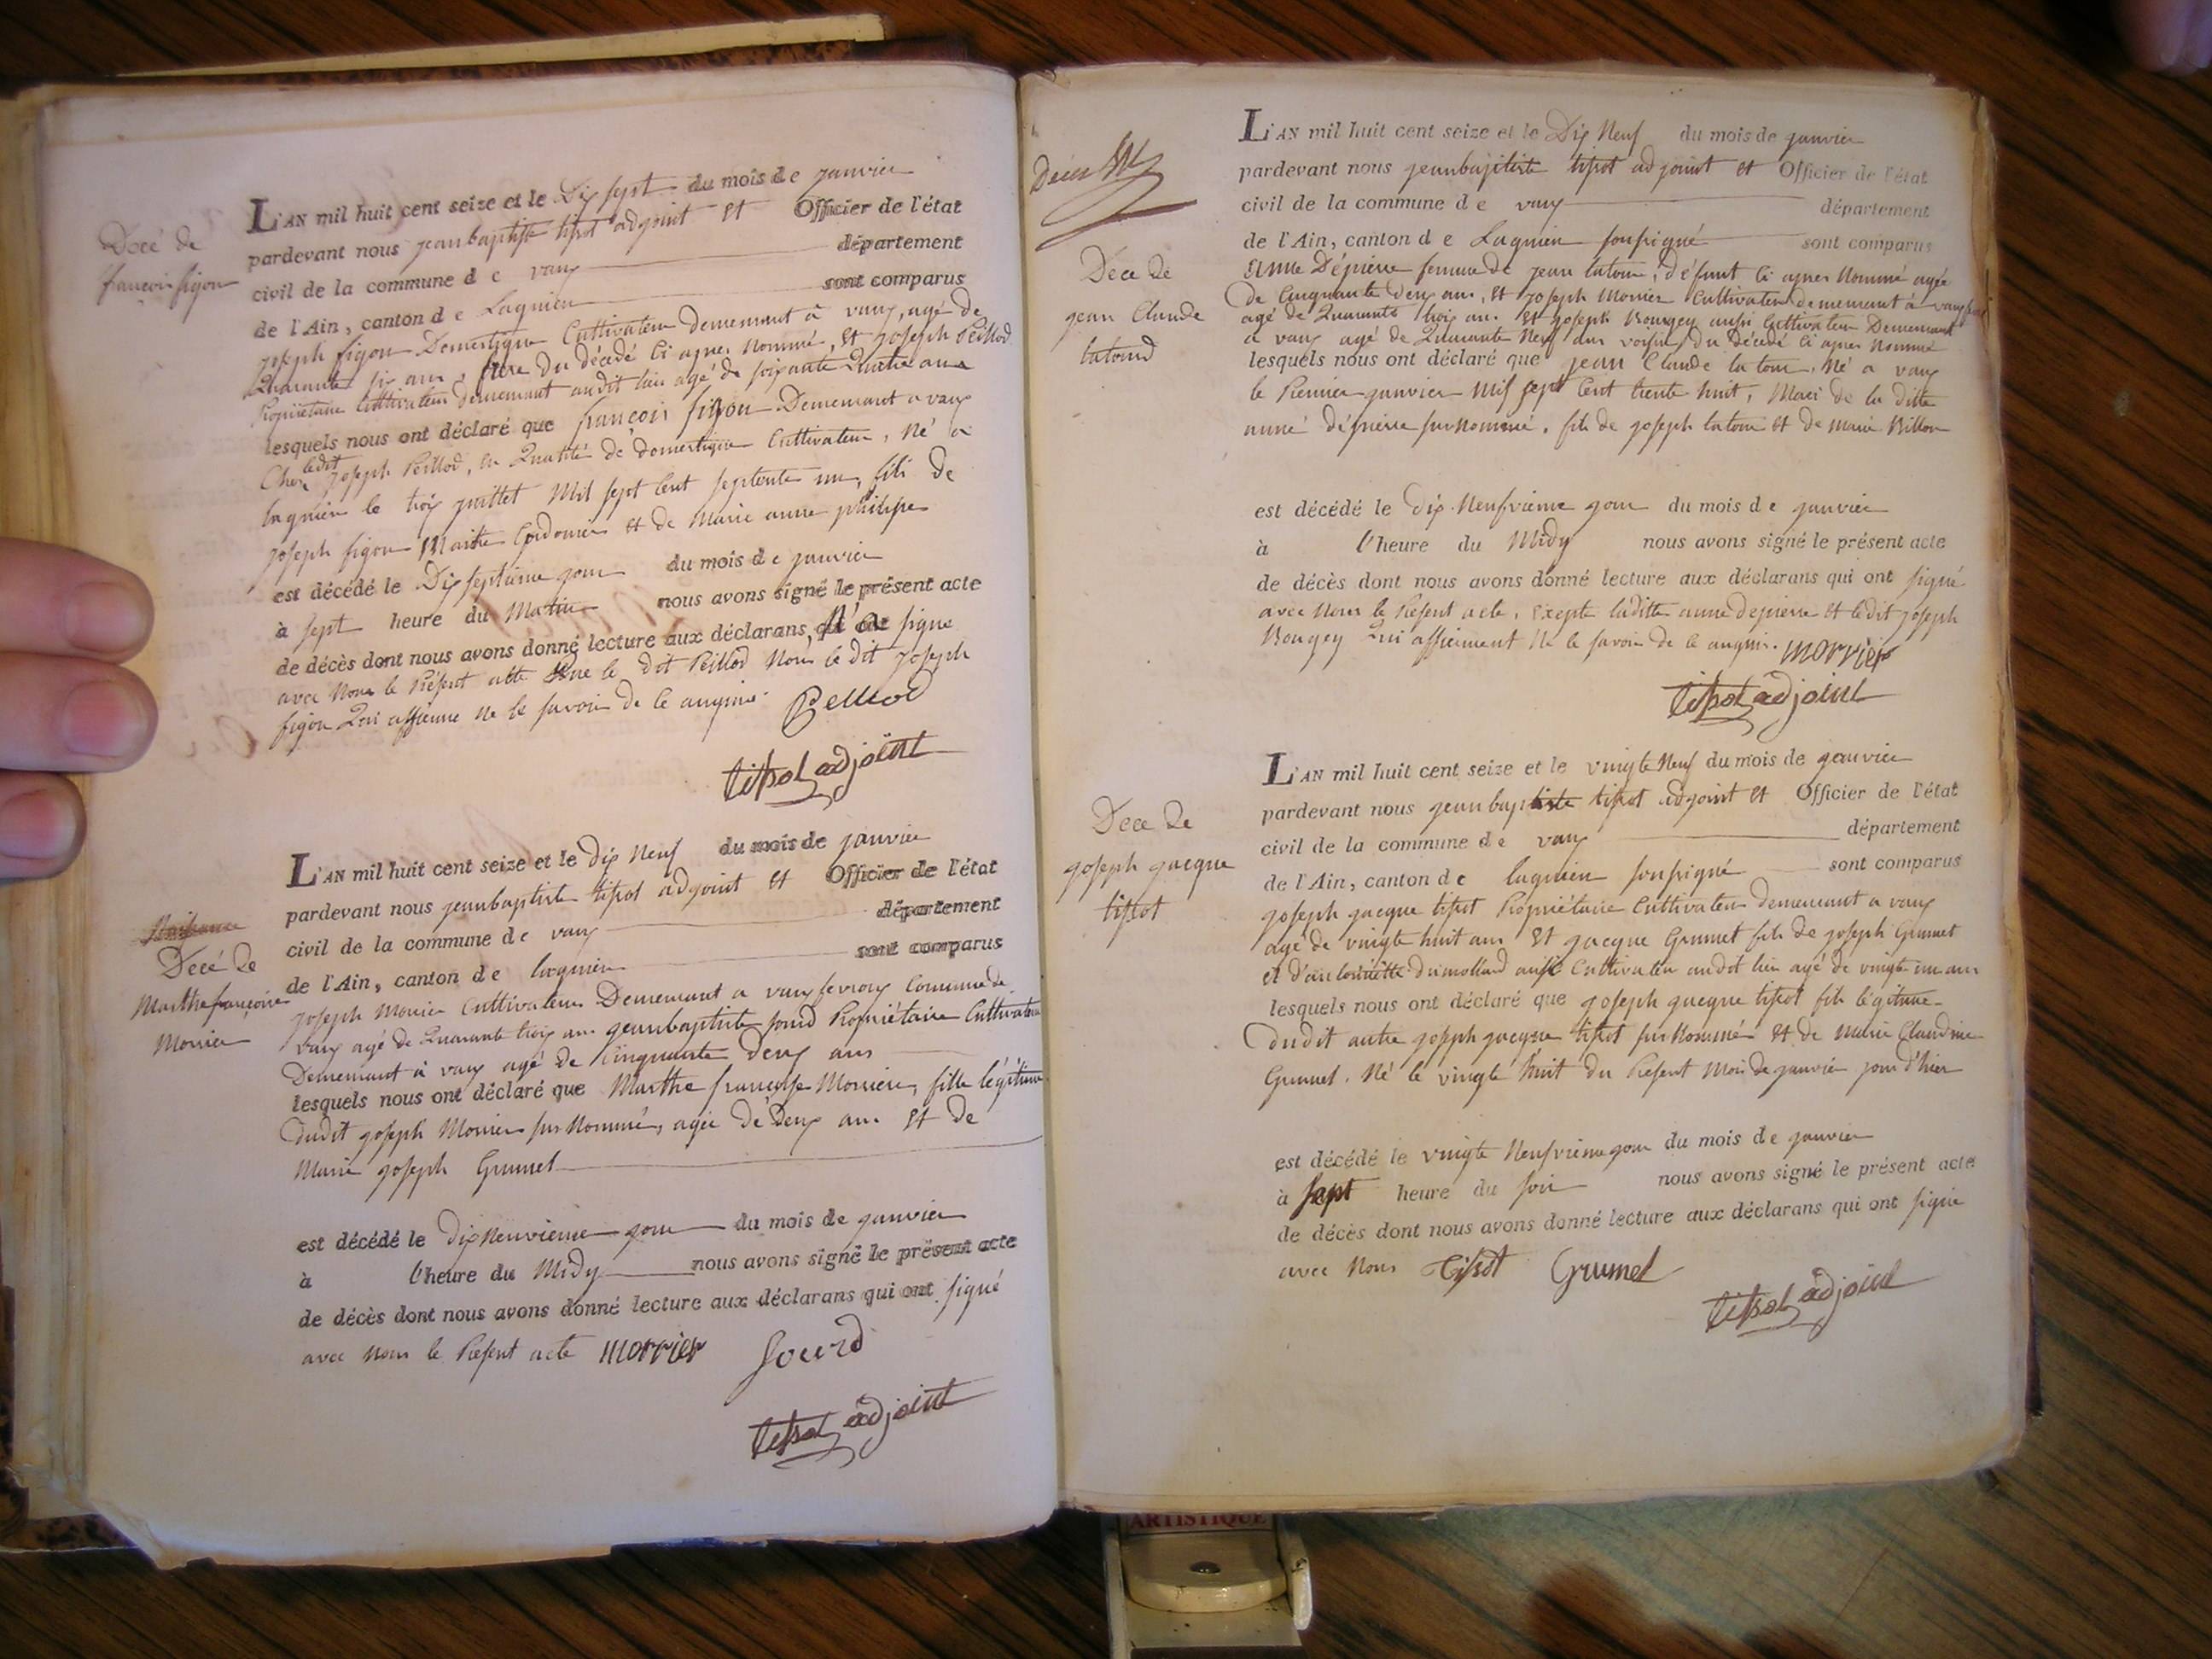 Decé de
francois figon
L'AN mil huit cent seize et le Dix sept du mois de janvier
pardevant nous jeanbaptiste tissot adjoint et Officier de l'état
civil de la commune de vaux département
de l'Ain, canton de Lagnieu sont comparus
joseph figon Domestique Cultivateur demeurant à vaux, agé de
Quarante six ans, frere du décédé ci apres nommé, et joseph Peillod
Propriétaire Cultivateur demeurant audit lieu agé de soixante Quatre ans
lesquels nous ont déclaré que francois figon Demeurant a vaux
Chez ledit joseph Peillod, en Qualité de domestique Cultivateur, Né a
lagnieu le trois juillet Mil sept Cent septente un, fils de
joseph figon Maitre Cordonier et de Marie anne philippe
est décédé le Dix septieme jour du mois de janvier
à sept heure du Matin nous avons signé le présent acte
de décès dont nous avons donné lecture aux déclarans, N'a signe
avec Nous le Présent acte Que le dit Peillod Non le dit joseph
figon Qui affirme Ne le savoir de ce anquis
Peillod
tissot adjoint
Decé de
Marthe françoise
Monier
L'AN mil huit cent seize et le dix Neuf du mois de janvier
pardevant nous jeanbaptiste tissot adjoint et Officier de l'état
civil de la commune de vaux département
de l'Ain, canton de lagnieu sont comparus
joseph Monier Cultivateur Demeurant a vaux fevroux Commune de
vaux agé de Quarante trois ans jeanbaptiste sourd Propriétaire Cultivateur
Demeurant à vaux agé de Cinquante deux ans
lesquels nous ont déclaré que Marthe françoise Moniere, fille légitime
dudit joseph Monier sus Nommé, agée de Deux ans et de
Marie joseph Grumet
est décédé le dix neuvieme jour du mois de janvier
à l'heure du Midy nous avons signé le présent acte
de décès dont nous avons donné lecture aux déclarans qui ont signé
avec Nous le Présent acte morrier Sourd
tissot adjoint
Déces
Dece de
jean Claude
latourd
L'AN mil huit cent seize et le Dix Neuf du mois de janvier
pardevant nous jeanbaptiste tissot adjoint et Officier de l'état
civil de la commune de vaux département
de l'Ain, canton de Lagnieu soussigné sont comparus
anne Dépierre femme de jean latour, défunt ci apres Nommé agée
De Cinquante deux ans, et joseph Monier Cultivateur demeurant à vaux
agé de Quarante trois ans et joseph Bourgey aussi Cultivateur Demeurant
a vaux agé de Quarante Neuf ans voisin du décédé ci apres nommé
lesquels nous ont déclaré que jean Claude latour, Né a vaux
le Premier janvier Mil sept Cent trente huit, Mari de la ditte
anne dépierre sus Nommé, fils de joseph latour et de Marie Billon
est décédé le dix Neufvieme jour du mois de janvier
à l'heure du Midy nous avons signé le présent acte
de décès dont nous avons donné lecture aux déclarans qui ont signé
avec Nous le Présent acte, Excepté laditte anne depierre et ledit joseph
Bourgey Qui affirment Ne le savoir de ce anquis. morrier
tissot adjoint
Dece de
joseph jacque
tissot
L'AN mil huit cent seize et le vingte Neuf du mois de janvier
pardevant nous jeanbaptiste tissot adjoint et Officier de l'état
civil de la commune de vaux département
de l'Ain, canton de lagnieu soussigné sont comparus
joseph jacque tissot Propriétaire Cultivateur demeurant a vaux
agé de vingte huit ans et jacque Grumet fils de joseph Grumet
et dumollard aussi Cultivateur audit lieu agé de vingte un ans
lesquels nous ont déclaré que joseph jacque tissot fils légitime
dudit autre joseph jacque tissot sus Nommé et de Marie Claudine
Grumet. Né le vingte huit du Présent Mois de janvier jour d'hier
est décédé le vingte Neufvieme jour du mois de janvier
à sept heure du soir nous avons signé le présent acte
de décès dont nous avons donné lecture aux déclarans qui ont signé
avec Nous Tissot Grumet
tissot adjoint
ARTISTIQUE